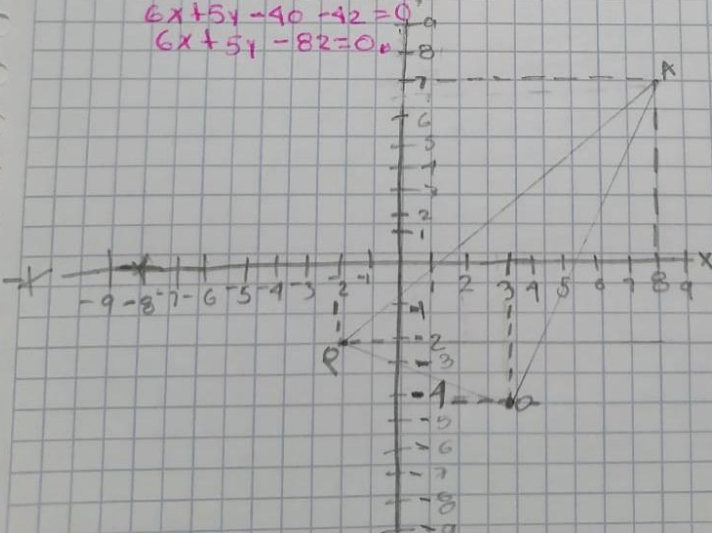 6x+5y-40-42=0
6x+5y-82=0
9
8
7
A
6
5
4
3
2
1
x
-9 -8 -7 -6 -5 -4 -3 -2 -1 1 2 3 4 5 6 7 8 9
-1
-2
P
-3
-4
Q
-5
-6
-7
-8
-9